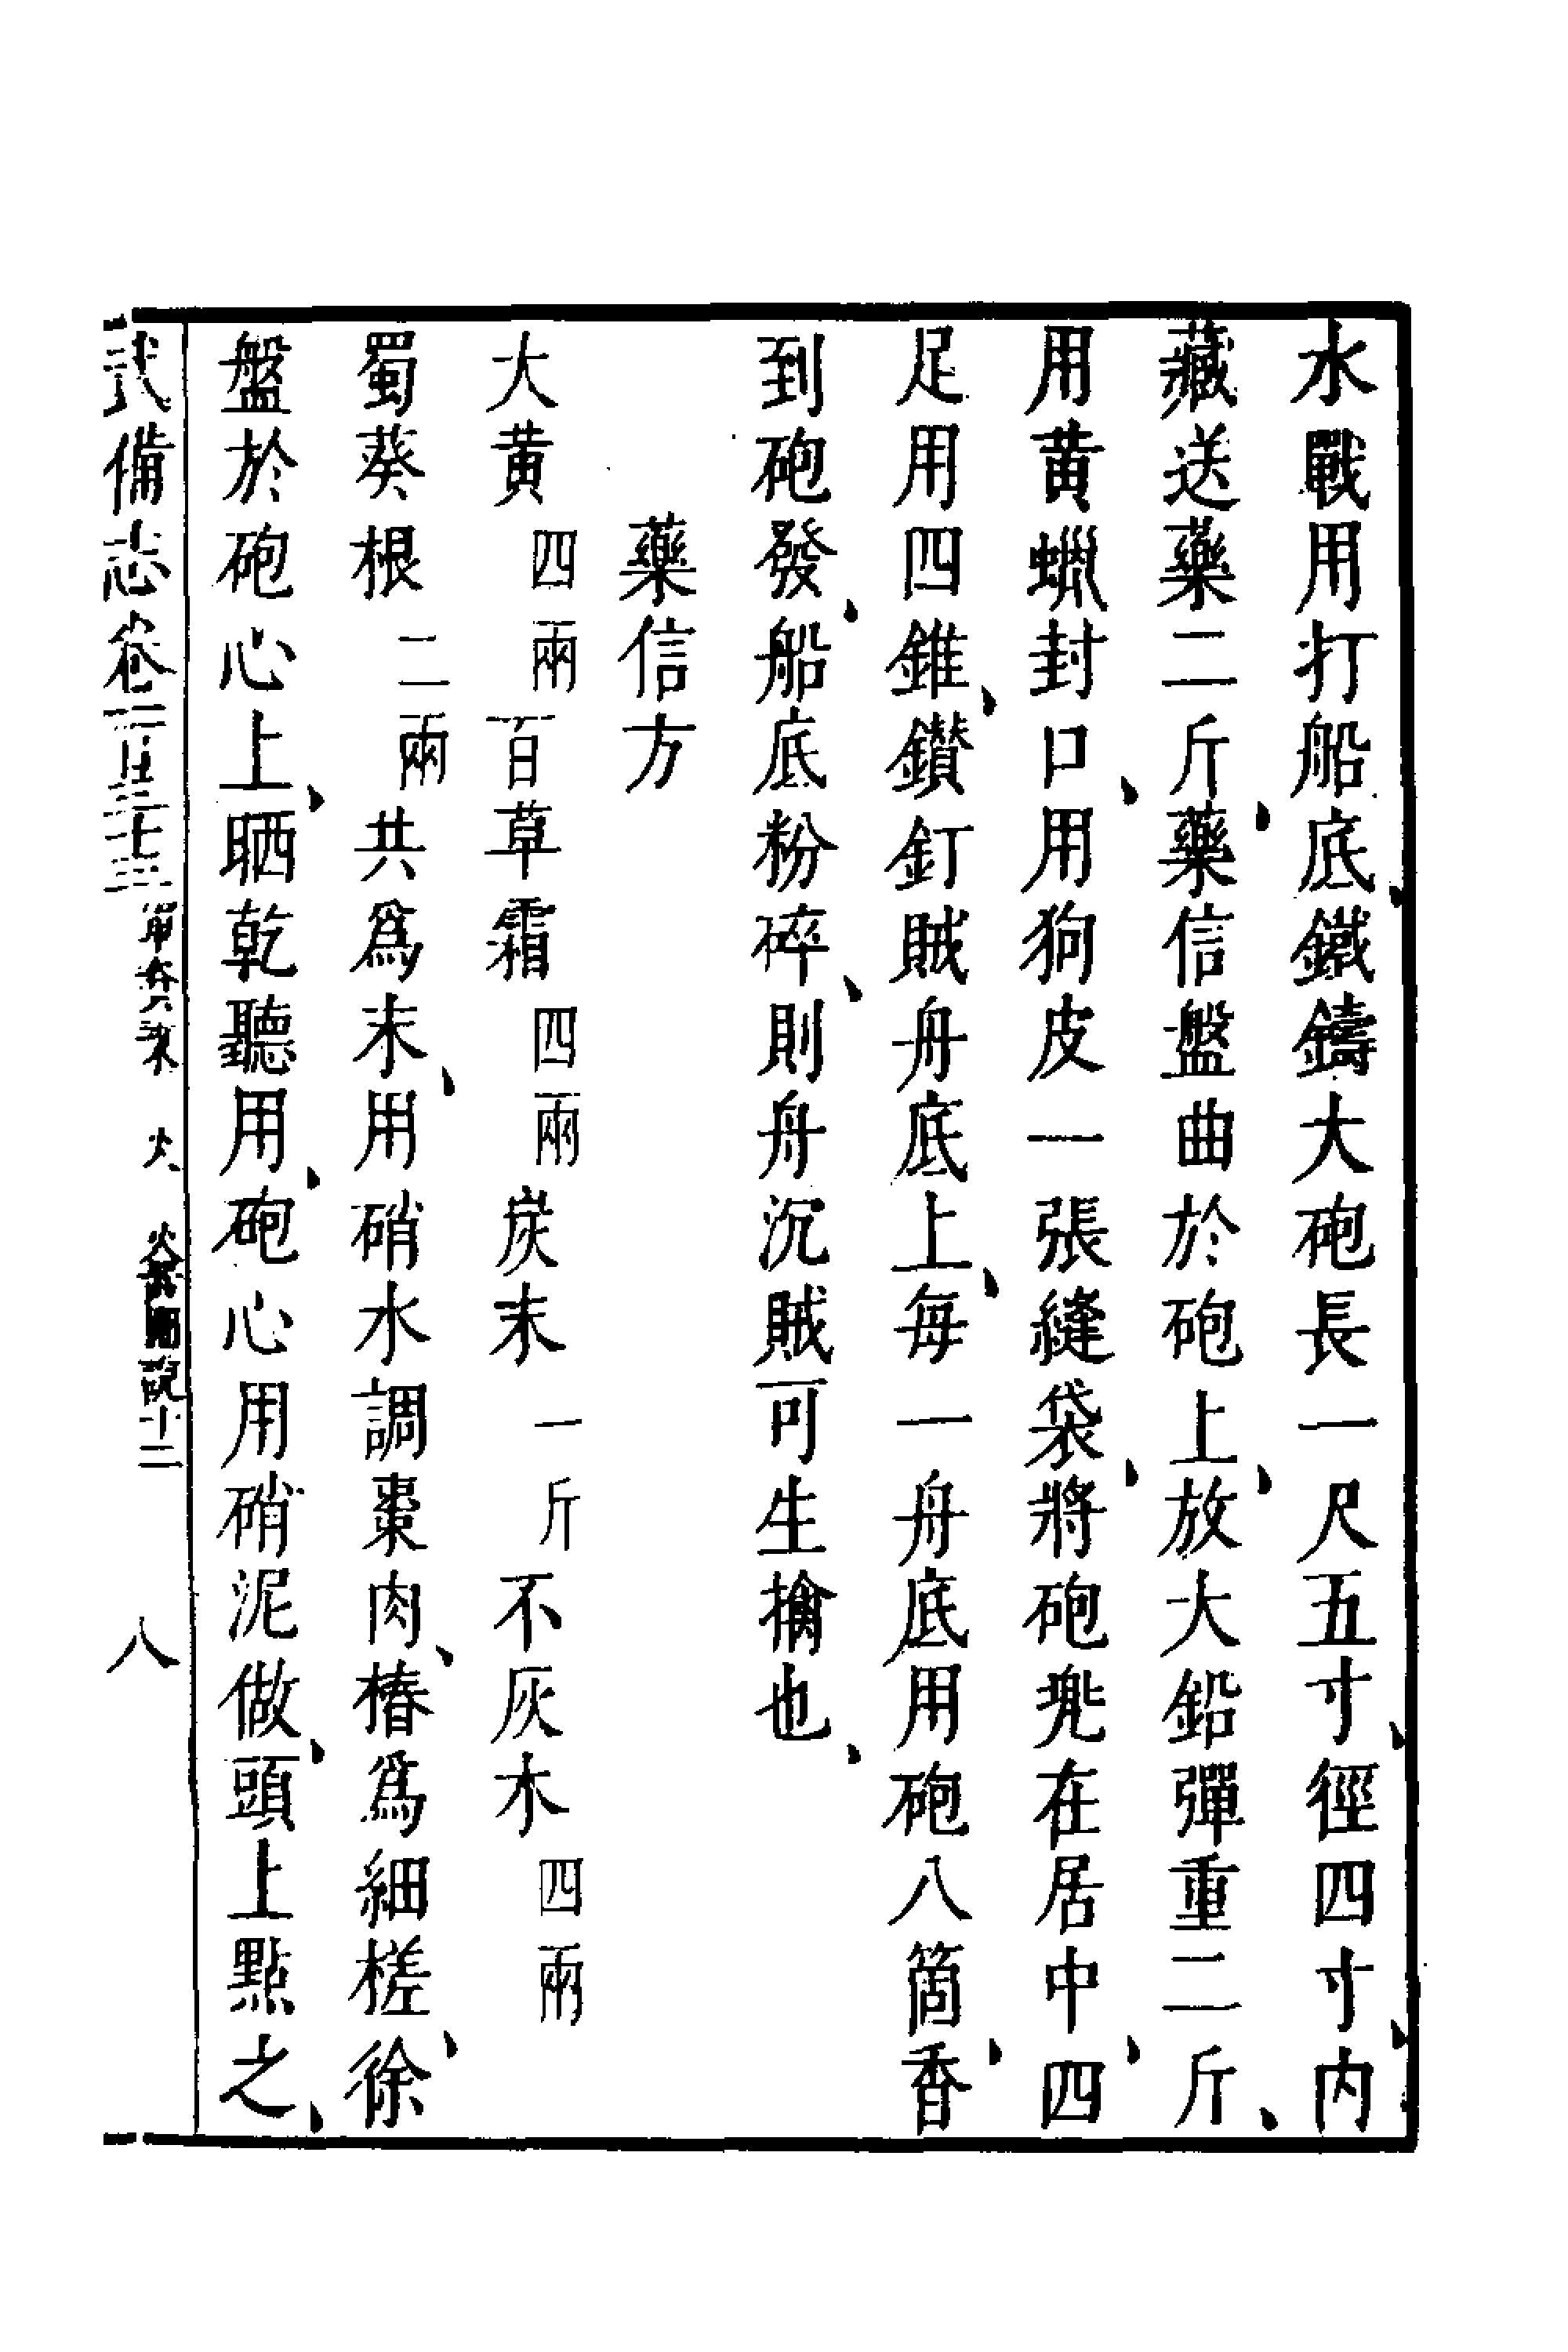 水戰用打船底、鐵鑄大砲長一尺五寸、徑四寸、内
藏送藥二斤、藥信盤曲於砲上、放大鉛彈重二斤、
用黃蠟封口、用狗皮一張縫袋、將砲兠在居中、四
足用四錐、鑽釘賊舟底上、每一舟底用砲八箇、香
到砲發、船底粉碎、則舟沉賊可生擒也、
藥信方
大黃四兩百草霜四兩炭末一斤不灰木四兩
蜀葵根二兩共爲末、用硝水調棗肉、椿爲細槎、徐
盤於砲心上、晒乾聽用、砲心用硝泥做、頭上點之、
武備志卷一百三十三 軍資乘 火 火器圖説十二 八